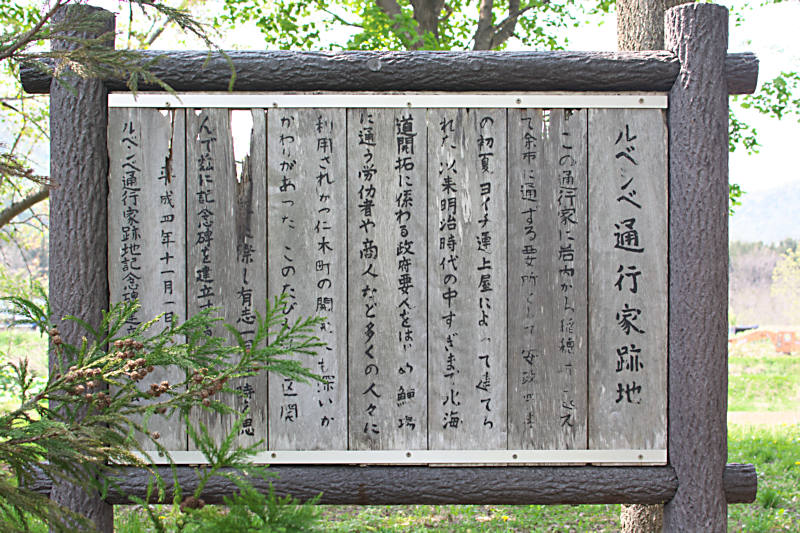 ルベシベ通行家跡地
この通行家は岩内から稲穂峠を越え
て余市に通ずる要所として安政
の初夏ヨイチ運上屋によって建てら
れた 以来明治時代の中すぎまで北海
道開拓に係わる政府要人をはじめ鰊場
に通う労働者や商人など多くの人々に
利用されかつ仁木町の開拓にも深いか
かわりがあった このたび 区開
際し有志一同 時を思
んで茲に記念碑を建立する
平成四年十一月一日
ルベシベ通行家跡地記念碑建立